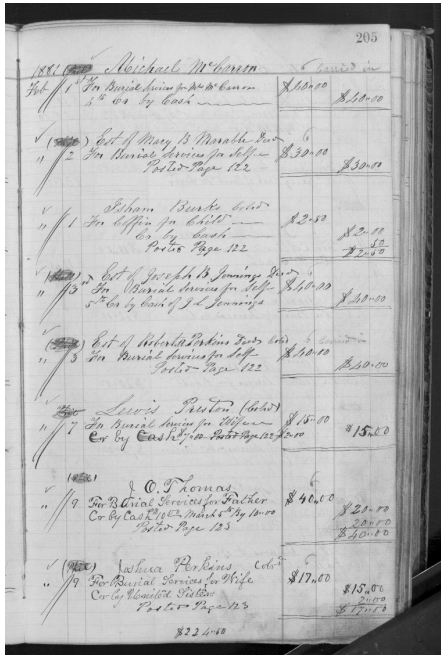 205
1881 Michael McCarron
Feb 1st For Burial Services for Mr McCarron $40.00
5th Cr by Cash $40.00
Est of Mary B Marable Decd
" 2 For Burial Services for Self $30.00
Posted Page 122 $30.00
Isham Burks Colod
" 1 For Coffin for Child $2.50
Cr by Cash $2.00
Posted Page 122 50
$2.50
Est of Joseph B Jennings Decd
" 3rd For Burial Services for Self $40.00
5th Cr by Cash of J L Jennings $40.00
Est of Robert Perkins Decd Cold
" 3 For Burial Services for Self $40.00
Posted Page 122 $40.00
Lewis Preston (Colod)
" 7 For Burial Services for Wife $15.00
Cr by Cash Posted Page 122 $2.00 $15.00
J. O. Thomas
" 9 For Burial Services for Father $40.00
Cr by Cash March 5th By 20.00 $20.00
Posted Page 123 20.00
$40.00
Joshua Perkins Colrd
" 9 For Burial Services for Wife $17.00
Cr by United Sisters $15.00
Posted Page 123 2.00
$17.00
$224.50